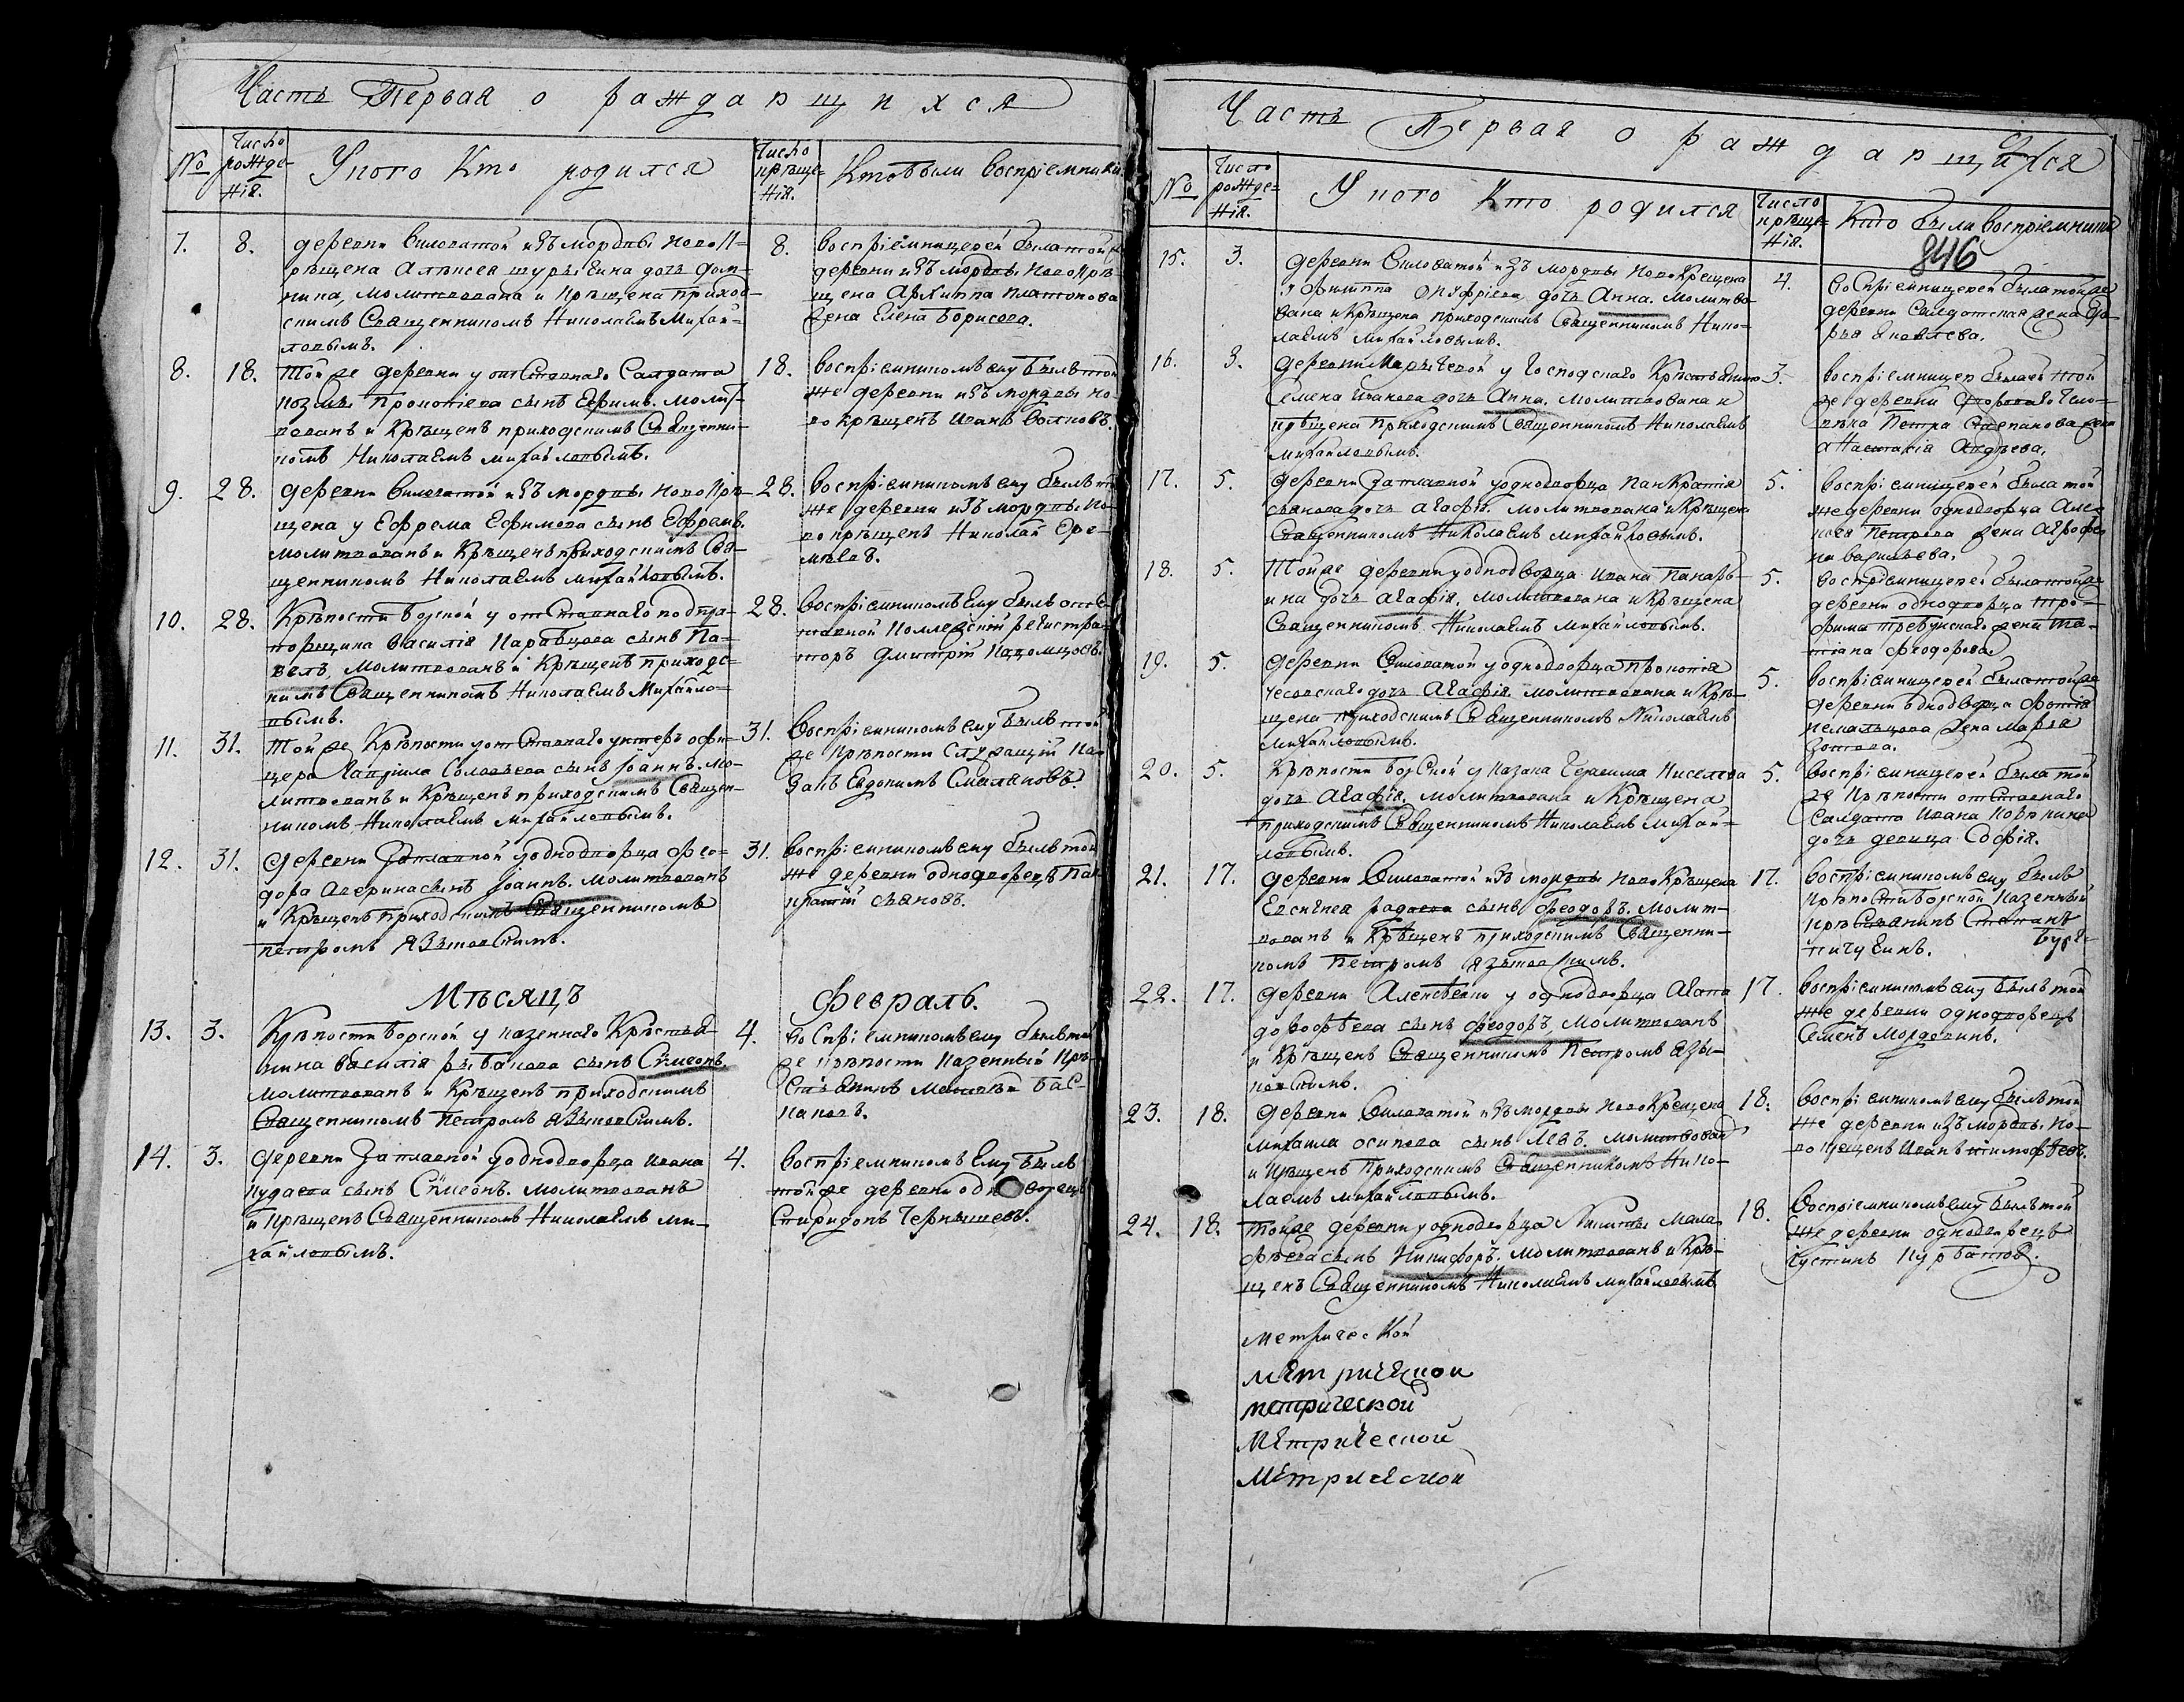 Часть Первая о раждающихся
№
Число рожде-нія.
У кого Кто родился
Число крѣще-нія.
Кто были воспріемники
7. 8.
деревни Виловатой изъ мордвы новок-
рѣщена Алѣксея дочь Дом-
ника, молитвована и крѣщена приход-
скимъ Священникомъ Николаемъ Михай-
ловымъ.
8. воспріемницей была той
деревни изъ мордвы новокрѣ-
щена Архиппа Платонова
жена Елена Борисова.
8. 18.
Той же деревни у отставнаго Салдата
Козмы Прокопіева сынъ Ефимъ. молит-
вованъ и Крѣщенъ приходскимъ Священни-
комъ Николаемъ Михайловымъ.
18. воспріемникомъ ему былъ той
же деревни изъ мордвы но-
вокрѣщенъ Иванъ
9. 28.
деревни Виловатой изъ мордвы новокрѣ-
щена у Ефрема Ефимова сынъ Ефраим.
молитвованъ и Крѣщенъ приходскимъ Свя-
щенникомъ Николаемъ Михайловымъ.
28. воспріемникомъ ему былъ той
же деревни изъ мордвы но-
вокрѣщенъ Николай Ере-
мѣевъ.
10. 28.
Крѣпости Борской у отставнаго подпра-
порщика Василія Каравцова сынъ Па-
велъ, молитвованъ и Крѣщенъ приходс-
кимъ Священникомъ Николаемъ Михайло-
вымъ.
28. воспріемникомъ ему былъ отс-
тавной Коллежскій регистра-
торъ Дмитрій
11. 31.
Той же Крѣпости у отставнаго унтеръ офи-
цера Гавріила Соловьева сынъ Іоаннъ. мо-
литвованъ и Крѣщенъ приходскимъ Священ-
никомъ Николаемъ Михайловымъ.
31. воспріемникомъ ему былъ той
же крѣпости служащій Ка-
закъ Евдокимъ Смаляновъ.
12. 31.
деревни Заплавной у однодворца Фео-
дора Аверина сынъ Іоаннъ. молитвованъ
и Крѣщенъ приходскимъ Священникомъ
петромъ Языковскимъ.
31. воспріемникомъ ему былъ той
же деревни однодворецъ Пан-
кратій сѣяновъ.
Мѣсяцъ Февраль.
13. 3.
Крѣпости Борской у казеннаго Крѣстья-
нина Василія рыбакова сынъ Сѵмеонъ.
молитвованъ и Крѣщенъ приходскимъ
Священникомъ Петромъ Языковскимъ.
4. воспріемникомъ ему былъ той
же крѣпости казенный Крѣ-
стьянинъ Матвѣй Бас-
каковъ.
14. 3.
деревни Заплавной у однодворца Ивана
Кудаева сынъ Сѵмеонъ. молитвованъ
и крѣщенъ Священникомъ Николаемъ Ми-
хайловымъ.
4. воспріемникомъ ему былъ
той же деревни однодворецъ
Спиридонъ Чернышевъ.
Часть Первая о раждающихся
846
№
Число рожде-нія.
У кого Кто родился
Число крѣще-нія.
Кто были воспріемники
15. 3.
деревни Виловатой изъ мордвы новокрещена
у Филиппа Онуфріева дочь Анна. молитво-
вана и Крѣщена приходскимъ Священникомъ Нико-
лаемъ Михайловымъ.
4. воспріемницей была той же
деревни Салдатская жена
Яковлева.
16. 3.
деревни Марычевой у Господскаго Крѣстьянина
Семена Иванова дочь Анна. молитвована и
крѣщена приходскимъ Священникомъ Николаемъ
Михайловымъ.
3. воспріемницею была той
же деревни двороваго чело-
вѣка Петра Степанова жена
Анастасія Андрѣева.
17. 5.
деревни Заплавной у однодворца Панкратія
сѣянова дочь Агафія. молитвована и Крѣщена
Священникомъ Николаемъ Михайловымъ.
5. воспріемницей была той
же деревни однодворца Алек-
сѣя Петрова жена Агрофе-
на Васильева.
18. 5.
Той же деревни у однодворца Ивана Панарь-
ина дочь Агафія. молитвована и Крѣщена
Священникомъ Николаемъ Михайловымъ.
5. воспріемницей была той же
деревни однодворца Тро-
фима Требунскаго жена Та-
тіана Феодорова.
19. 5.
деревни Виловатой у однодворца Прокопія
Чесовскаго дочь Агафія. молитвована и Крѣ-
щена приходскимъ Священникомъ Николаемъ
Михайловымъ.
5. воспріемницей была той же
деревни однодворца Фотія
немальцова жена Марѳа
Зотова.
20. 5.
Крѣпости Борской у казака Герасима Киселева
дочь Агафія. молитвована и Крѣщена
приходскимъ Священникомъ Николаемъ Михай-
ловымъ.
5. воспріемницей была той
же крѣпости отставнаго
Салдата Ивана Корюкина
дочь девица Софія.
21. 17.
деревни Виловатой изъ мордвы новокрѣщена
Евсигнея радаева сынъ Феодоръ. молит-
вованъ и Крѣщенъ приходскимъ Священни-
комъ Петромъ Языковскимъ.
17. воспріемникомъ ему былъ
крѣпости Борской казенный
крѣстьянинъ Степанъ

22. 17.
деревни Алексѣевки у однодворца Агапа
дорофѣева сынъ Феодоръ, молитвованъ
и Крѣщенъ Священникомъ Петромъ Язы-
ковскимъ.
17. воспріемникомъ ему былъ той
же деревни однодворецъ
Семенъ Мордовинъ.
23. 18.
деревни Виловатой изъ мордвы новокрещена
михаила осипова сынъ Левъ. молитвованъ
и Крѣщенъ приходскимъ Священникомъ Нико-
лаемъ Михайловымъ.
18. воспріемникомъ ему былъ той
же деревни изъ мордвы но-
вокрещенъ Иванъ тимофѣевъ.
24. 18.
той же деревни у однодворца Никиты Мала-
фѣева сынъ Никифоръ. молитвованъ и Крѣ-
щенъ Священникомъ Николаемъ Михайловымъ
18. воспріемникомъ ему былъ той
же деревни однодворецъ
Іустинъ Курбатовъ.
метрической
метрической
метрической
метрической
метрической